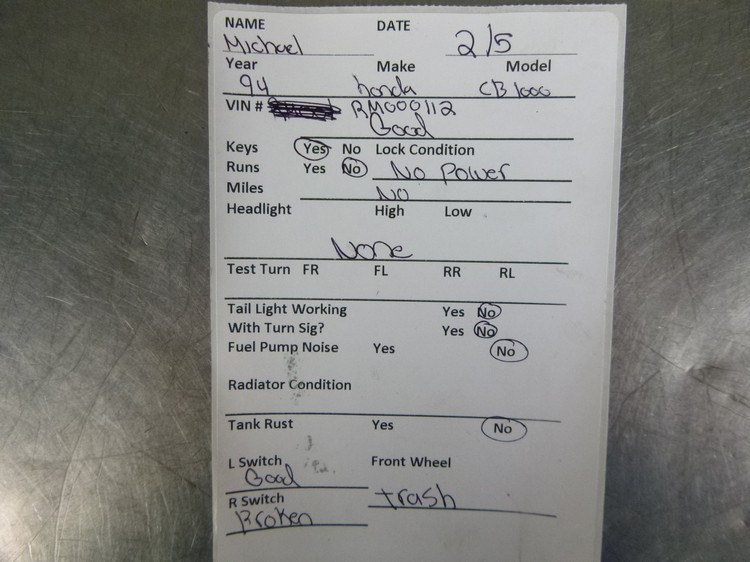 NAME DATE
Michael 2/5
Year Make Model
94 honda CB1000
VIN # RM000112
Good
Keys Yes No Lock Condition
Runs Yes No No Power
Miles No
Headlight High Low
None
Test Turn FR FL RR RL
Tail Light Working Yes No
With Turn Sig? Yes No
Fuel Pump Noise Yes No
Radiator Condition
Tank Rust Yes No
L Switch Front Wheel
Good
R Switch trash
Broken